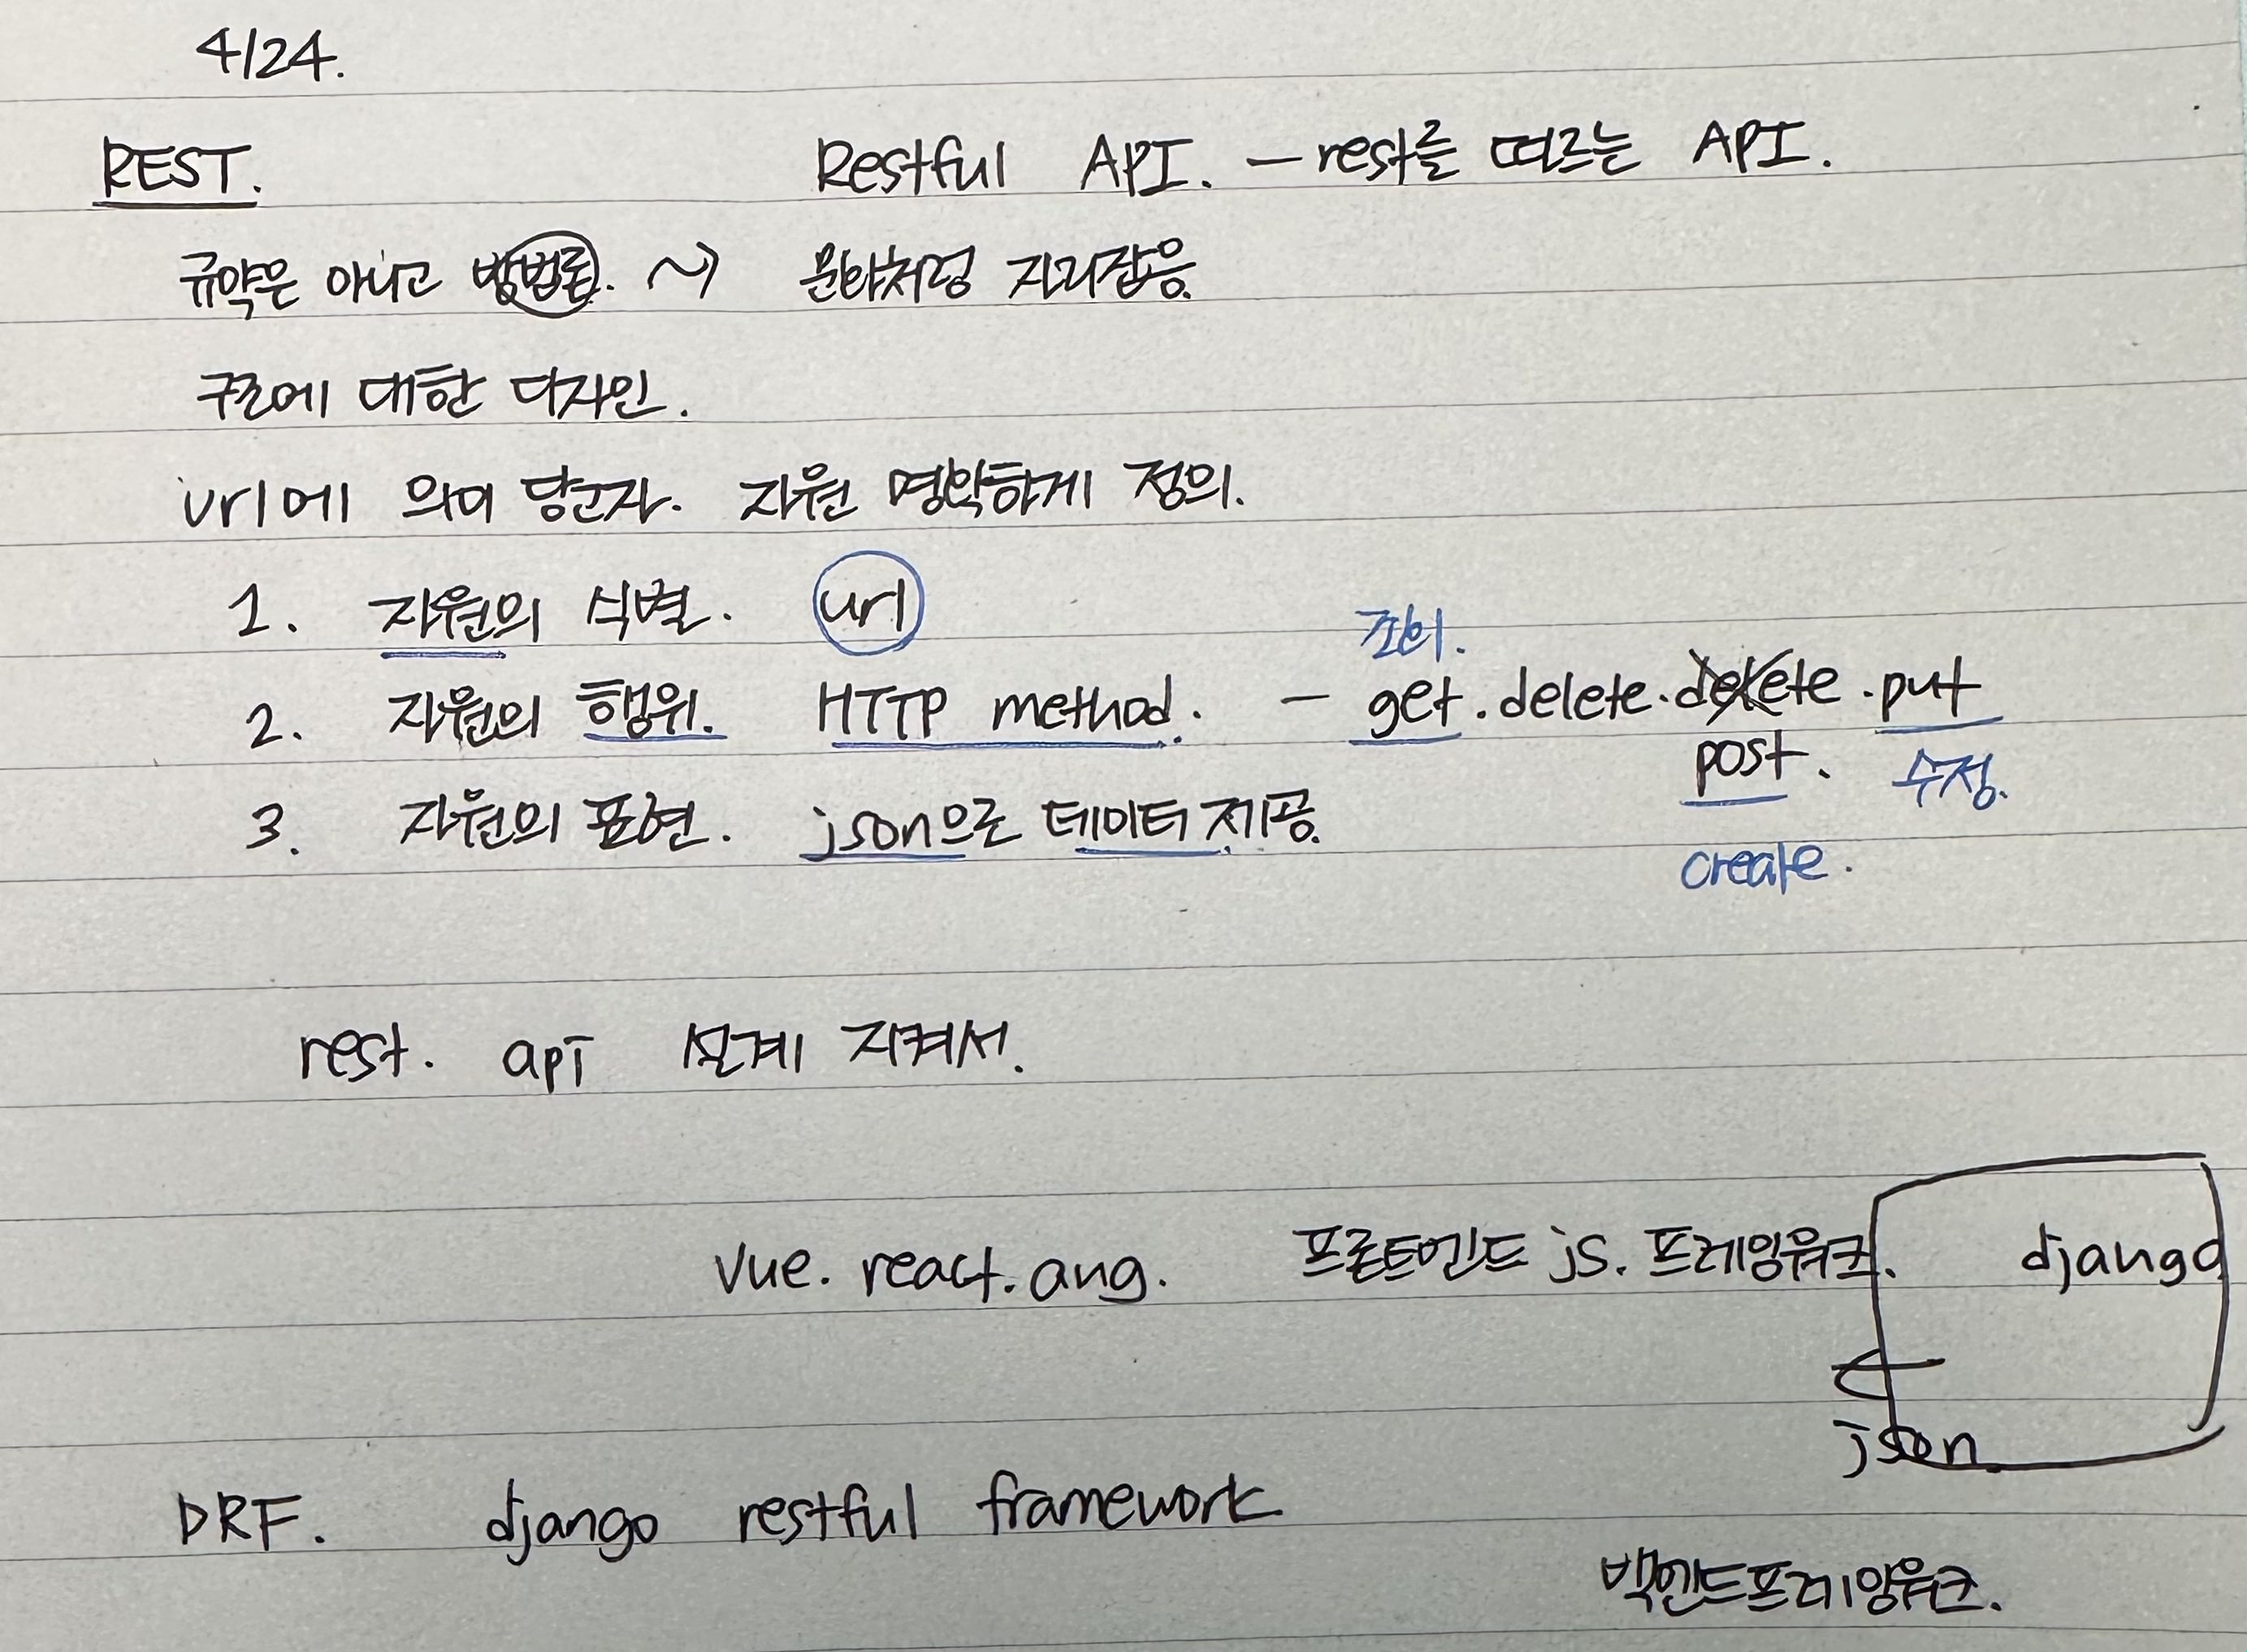 4/24.
REST. Restful API. — rest를 따르는 API.
규약은 아니고 방법론. ~> 문화처럼 자리잡음.
구조에 대한 디자인.
url에 의미 담는자. 자원 명확하게 정의.
1. 자원의 식별. url
조회.
2. 자원의 행위. HTTP method. - get. delete. delete. put
post. 수정.
3. 자원의 표현. json으로 데이터 제공.
create.
rest. api 설계 지켜서.
vue. react. ang. 프론트엔드 js. 프레임워크. django
json
DRF. django restful framework
백엔드프레임워크.